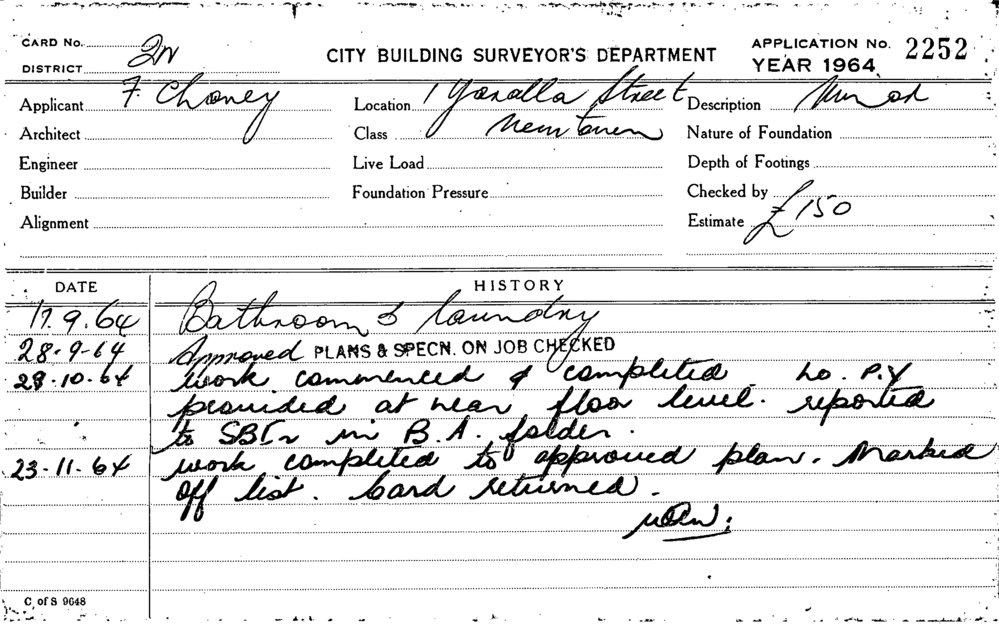 CARD No.
DISTRICT 2N
CITY BUILDING SURVEYOR'S DEPARTMENT
APPLICATION No. 2252
YEAR 1964
Applicant F Choney
Location 1 Yaralla Street
Description
Architect
Class Newtown
Nature of Foundation
Engineer
Live Load
Depth of Footings
Builder
Foundation Pressure
Checked by
Alignment
Estimate £150
DATE HISTORY
17.9.64 Bathroom & laundry
28-9-64 Approved PLANS & SPECN. ON JOB CHECKED
28-10-64 work commenced & completed. no. P.Y
provided at near floor level. reported
to SBIr in B.A. folder.
23-11-64 work completed to approved plan. Marked
off list. Card returned.
C of S 9648